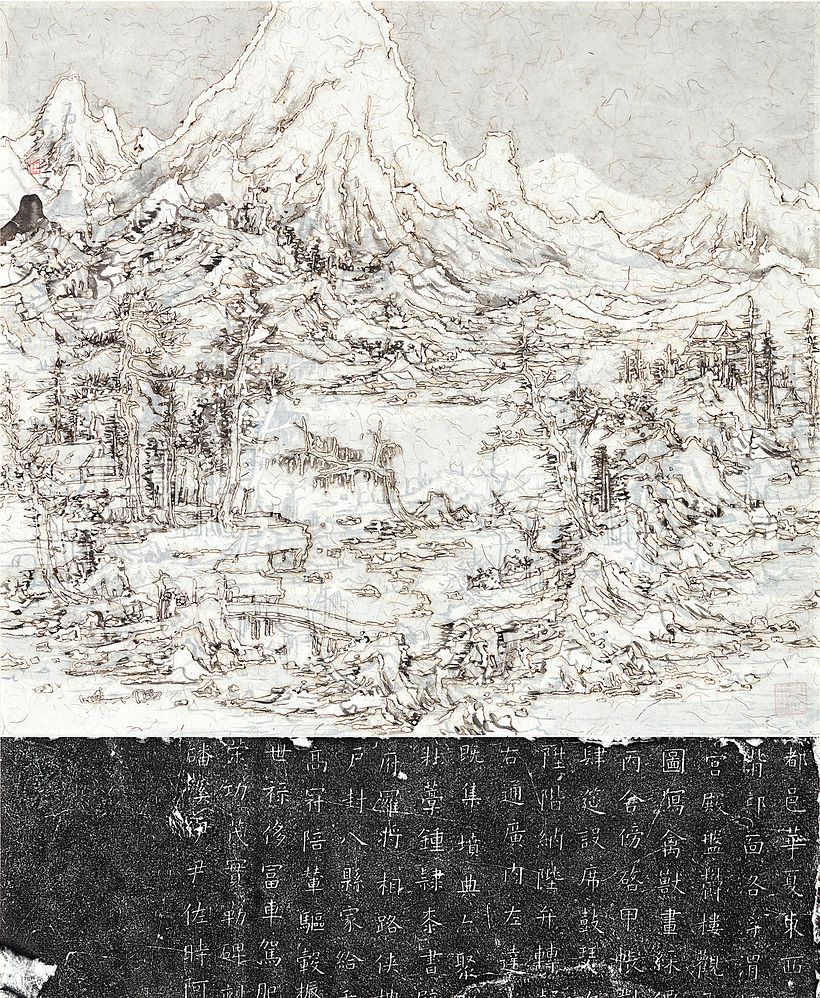 都邑華夏東西
背邙面洛浮渭
宮殿盤鬱樓觀
圖寫禽獸畫綵
丙舍傍啓甲帳
肆筵設席鼓瑟
陞階納陛弁轉疑
右通廣内左達
既集墳典亦聚
杜藁鍾隸桼書
府羅將相路俠槐
戶封八縣家給千
高冠陪輦驅轂振
世祿侈富車駕肥
功茂實勒碑刻
磻溪伊尹佐時阿